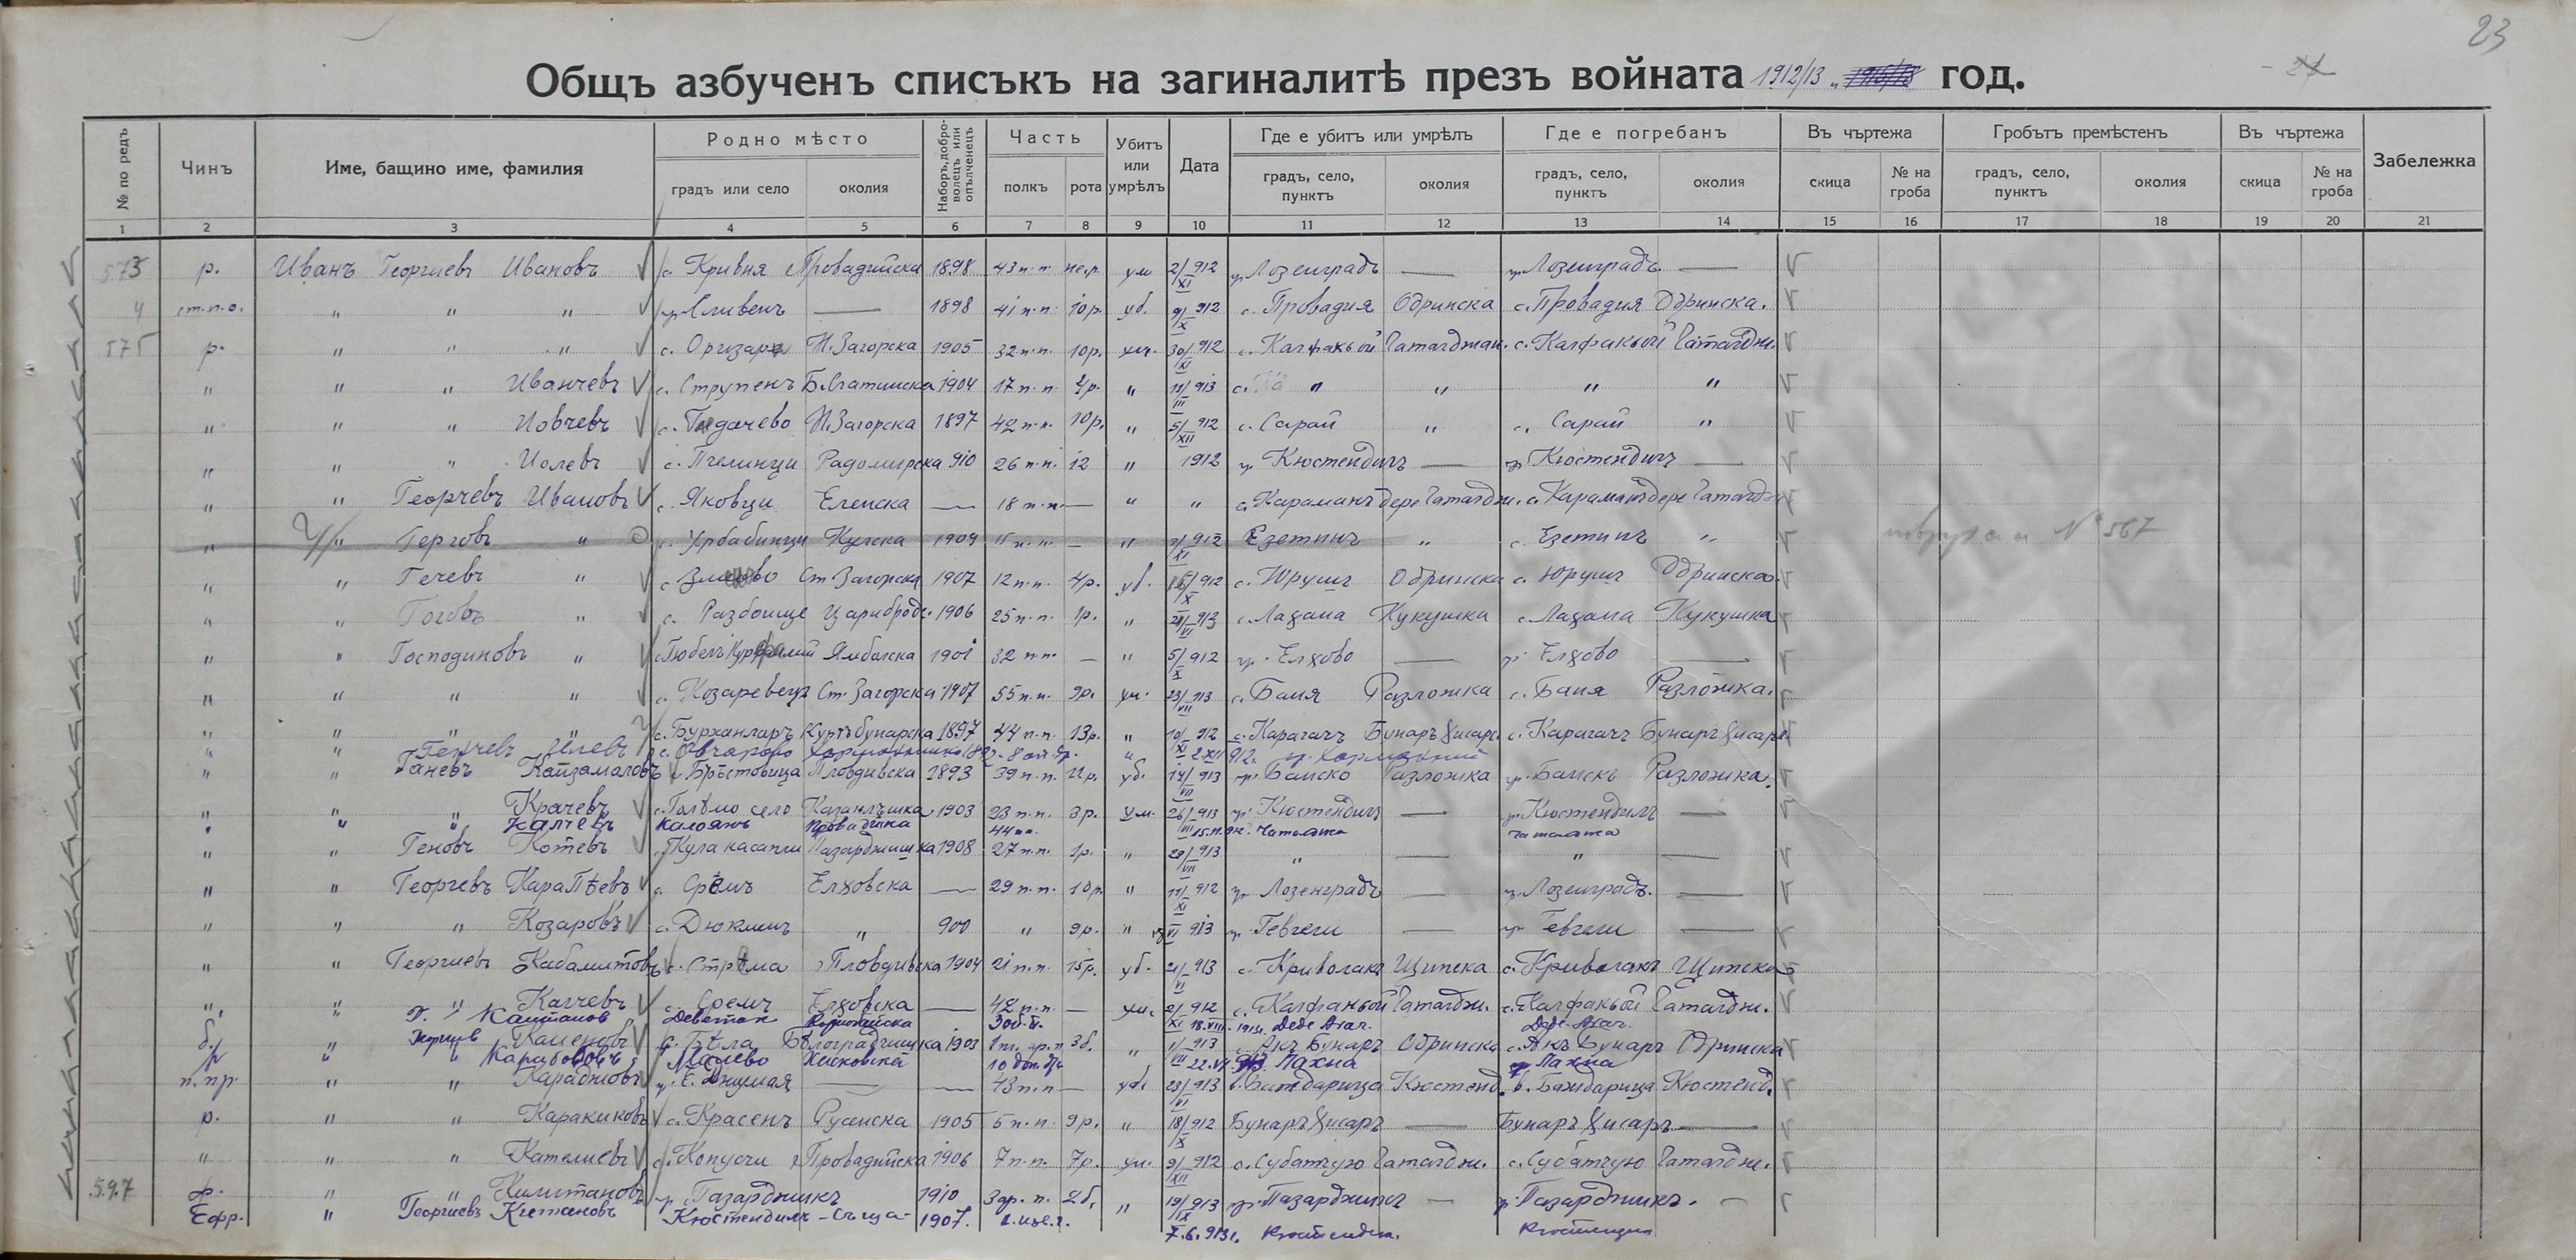 23
Общъ азбученъ списъкъ на загиналитѣ презъ войната 1912/13 год.
№ по редъ | Чинъ | Име, бащино име, фамилия | Родно мѣсто | Наборъ, добро-волецъ или опълченецъ | Часть | Убитъ или умрѣлъ | Дата | Где е убитъ или умрѣлъ | Где е погребанъ | Въ чъртежа | Гробътъ премѣстенъ | Въ чъртежа | Забележка
градъ или село | околия | полкъ | рота | градъ, село, пунктъ | околия | градъ, село, пунктъ | околия | скица | № на гроба | градъ, село, пунктъ | околия | скица | № на гроба
1 2 3 4 5 6 7 8 9 10 11 12 13 14 15 16 17 18 19 20 21
573 р. Иванъ Георгиевъ Ивановъ с. Кривня Провадийска 1898 43 п.п. не.р. ум 2/XI 912 гр. Лозенградъ — гр. Лозенградъ —
4 ст.п.о. " " " гр. Сливенъ — 1898 41 п.п. 10 р. уб. 9/X 912 с. Провадия Одринска с. Провадия Одринска.
575 р. " " " с. Оризаре Н. Загорска 1905 32 п.п. 10 р. ум. 30/XI 912 с. Калфакьой Чаталджан. с. Калфакьой Чаталдж.
" " " Иванчевъ с. Струпенъ Б. Слатинска 1904 17 п.п. 4 р. " 11/III 913 с. " " " "
" " " Йовчевъ с. Н. Загорска 1897 42 п.п. 10 р. " 5/XII 912 с. Сарай " с. Сарай "
" " " Иолевъ с. Пчелинци Радомирска 910 26 п.п. 12 " 1912 гр. Кюстендилъ — гр. Кюстендилъ —
" " Георчевъ Ивановъ с. Яковци Еленска — 18 п.п. — " " с. Караманъ дере Чаталдж. с. Караманъ дере Чаталдж
" " Герговъ " с. Кулска 1909 15 п.п. — " 9/XI 912 Езетинъ " с. Езетинъ " № 567
" " Гечевъ " с. Ст. Загорска 1907 12 п.п. 4 р. уб. 16/X 912 с. Юрушъ Одринска с. Юрушъ Одринска.
" " " с. Разбоище Царибродс. 1906 25 п.п. 1 р. " с. Лахана Кукушка с. Лахана Кукушка
" " Господиновъ " Ямболска 1901 32 п.п. — " 5/X 912 гр. Елхово — гр. Елхово —
" " " " с. Козаревецъ Ст. Загорска 1907 55 п.п. 9 р. ум. 23/VII 913 с. Баня Разложка с. Баня Разложка.
" " " " с. Бурханларъ Куртъбунарска 1897 44 п.п. 13 р. " 10/XI 912 с. Карагачъ Бунаръ Хисаръ с. Карагачъ Бунаръ Хисаръ
" " Илевъ с. Овчарово Харманлийско
" " Ганевъ Кайзамаловъ с. Брѣстовица Пловдивска 1893 39 п.п. 11 р. уб. 14/VII 913 гр. Банско Разложка гр. Банско Разложка.
" " " Крачевъ с. Голѣмо село Казанлъшка 1903 23 п.п. 3 р. ум. 26/VII 913 гр. Кюстендилъ — гр. Кюстендилъ —
" " " Калчевъ Калоянъ Провадийска 44 п.п. 15.11.912 Чаталжа Чаталжа
" " Геновъ Котевъ Пазарджишка 1908 27 п.п. 1 р. " 29/VII 913 " — " —
" " Георгевъ КараПѣевъ с. Срѣмъ Елховска — 29 п.п. 10 р. " 11/XI 912 гр. Лозенградъ — гр. Лозенградъ. —
" " " Козаровъ с. Дюкменъ " 900 " 9 р. " VI 913 гр. Гевгели — гр. Гевгели —
" " Георгиевъ Кабамитовъ с. Стрѣма Пловдивска 1904 21 п.п. 15 р. уб. 21/VI 913 с. Криволакъ Щипска с. Криволакъ Щипска
" " " Калчевъ с. Сремъ Елховска — 42 п.п. — ум. 2/XI 912 с. Калфакьой Чаталдж. с. Калфакьой Чаталдж.
Каштановъ Деветак 18.VIII.1913г. Деде Агач. Деде Агач.
б. " Каменовъ с. Бѣла Бѣлоградчишка 1903 3 б. " 11/VII 913 с. Акъ Бунаръ Одринска с. Акъ Бунаръ Одринска
р " " Малево Хасковска 10 Лахна Лахна
п.пр. " " Караджовъ гр. Е. Джумая — — 43 п.п — уб. 23/VI 913 в. Бандарица Кюстенд. в. Бандарица Кюстенд.
р. " " Каракиковъ с. Красенъ Русенска 1905 5 п.п. 9 р. " 18/X 912 Бунаръ Хисаръ — Бунаръ Хисаръ —
" " " Кателиевъ с. Копусчи Провадийска 1906 7 п.п. 7 р. ум. 9/XII 912 с. Субатчую Чаталдж. с. Субатчую Чаталдж.
597 ф. " " гр. Пазарджикъ 1910 3 ар. п. 2 б. " 19/IX 913 гр. Пазарджикъ — гр. Пазарджикъ. —
Ефр. " Георгиевъ Китановъ Кюстендилъ — Съща — 1907. 7.6.913г. Кюстендил. Кюстендил